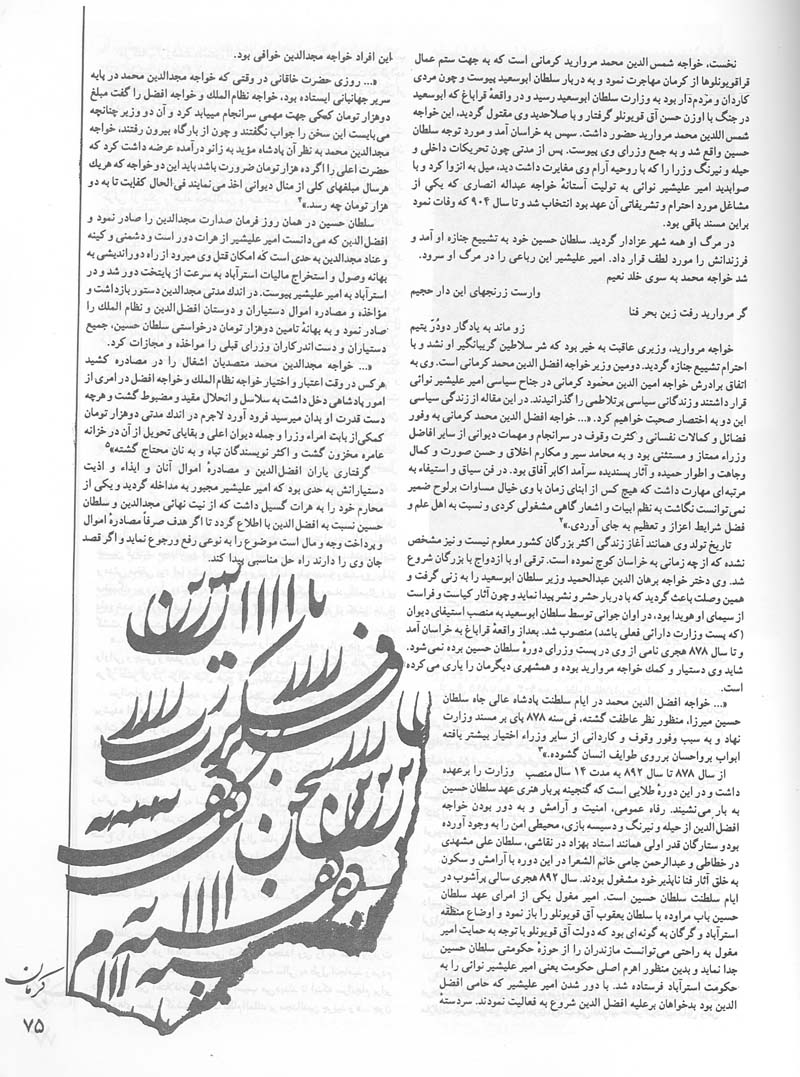 نخست، خواجه شمس الدین محمد مروارید کرمانی است که به جهت ستم عمال
قراقویونلوها از کرمان مهاجرت نمود و به دربار سلطان ابوسعید پیوست و چون مردی
کاردان و مردم‌دار بود به وزارت سلطان ابوسعید رسید و در واقعهٔ قراباغ که ابوسعید
در جنگ با اوزن حسن آق قویونلو گرفتار و با صلاحدید وی مقتول گردید، این خواجه
شمس اللدین محمد مروارید حضور داشت. سپس به خراسان آمد و مورد توجه سلطان
حسین واقع شد و به جمع وزرای وی پیوست. پس از مدتی چون تحریکات داخلی و
حیله و نیرنگ وزرا را که با روحیه آرام وی مغایرت داشت دید، میل به انزوا کرد و با
صوابدید امیر علیشیر نوائی به تولیت آستانهٔ خواجه عبداله انصاری که یکی از
مشاغل مورد احترام و تشریفاتی آن عهد بود انتخاب شد و تا سال ۹۰۴ که وفات نمود
براین مسند باقی بود.
در مرگ او همه شهر عزادار گردید. سلطان حسین خود به تشییع جنازه او آمد و
فرزندانش را مورد لطف قرار داد. امیر علیشیر این رباعی را در مرگ او سرود.
شد خواجه محمد به سوی خلد نعیم
وارست زرنجهای این دار حجیم
گر مروارید رفت زین بحر فنا
زو ماند به یادگار دودُرّ یتیم
خواجه مروارید، وزیری عاقبت به خیر بود که شر سلاطین گریبانگیر او نشد و با
احترام تشییع جنازه گردید. دومین وزیر خواجه افضل الدین محمد کرمانی است. وی به
اتفاق برادرش خواجه امین الدین محمود کرمانی در جناح سیاسی امیر علیشیر نوائی
قرار داشتند و زندگانی سیاسی پرتلاطمی را گذرانیدند. در این مقاله از زندگی سیاسی
این دو به اختصار صحبت خواهیم کرد. «... خواجه افضل الدین محمد کرمانی به وفور
فضائل و کمالات نفسانی و کثرت وقوف در سرانجام و مهمات دیوانی از سایر افاضل
وزراء ممتاز و مستثنی بود و به محامد سیر و مکارم اخلاق و حسن صورت و کمال
وجاهت و اطوار حمیده و آثار پسندیده سرآمد اکابر آفاق بود. در فن سیاق و استیفاء به
مرتبه‌ای مهارت داشت که هیچ کس از ابنای زمان با وی خیال مساوات برلوح ضمیر
نمی‌توانست نگاشت به نظم ابیات و اشعار گاهی مشغولی کردی و نسبت به اهل علم و
فضل شرایط اعزاز و تعظیم به جای آوردی.»۲
تاریخ تولد وی همانند آغاز زندگی اکثر بزرگان کشور معلوم نیست و نیز مشخص
نشده که از چه زمانی به خراسان کوچ نموده است. ترقی او با ازدواج با بزرگان شروع
شد. وی دختر خواجه برهان الدین عبدالحمید وزیر سلطان ابوسعید را به زنی گرفت و
همین وصلت باعث گردید که با دربار حشر و نشر پیدا نماید و چون آثار کیاست و فراست
از سیمای او هویدا بود، در اوان جوانی توسط سلطان ابوسعید به منصب استیفای دیوان
(که پست وزارت دارائی فعلی باشد) منصوب شد. بعداز واقعهٔ قراباغ به خراسان آمد
و تا سال ۸۷۸ هجری نامی از وی در پست وزرای دورهٔ سلطان حسین برده نمی‌شود.
شاید وی دستیار و کمک خواجه مروارید بوده و همشهری دیگرمان را یاری می‌کرده
است.
«... خواجه افضل الدین محمد در ایام سلطنت پادشاه عالی جاه سلطان
حسین میرزا، منظور نظر عاطفت گشته، فی سنه ۸۷۸ پای بر مسند وزارت
نهاد و به سبب وفور وقوف و کاردانی از سایر وزراء اختیار بیشتر یافته
ابواب برواحسان برروی طوایف انسان گشوده.»۳
از سال ۸۷۸ تا سال ۸۹۲ به مدت ۱۴ سال منصب وزارت را برعهده
داشت و در این دورهٔ طلایی است که گنجینه پربار هنری عهد سلطان حسین
به بار می‌نشیند. رفاه عمومی، امنیت و آرامش و به دور بودن خواجه
افضل الدین از حیله و نیرنگ و دسیسه بازی، محیطی امن را به وجود آورده
بودو ستارگان قدر اولی همانند استاد بهزاد در نقاشی، سلطان علی مشهدی
در خطاطی و عبدالرحمن جامی خاتم الشعرا در این دوره با آرامش و سکون
به خلق آثار فنا ناپذیر خود مشغول بودند. سال ۸۹۲ هجری سالی پرآشوب در
ایام سلطنت سلطان حسین است. امیر مغول یکی از امرای عهد سلطان
حسین باب مراوده با سلطان یعقوب آق قویونلو را باز نمود و اوضاع منطقه
استرآباد و گرگان به گونه‌ای بود که دولت آق قویونلو با توجه به حمایت امیر
مغول به راحتی می‌توانست مازندران را از حوزهٔ حکومتی سلطان حسین
جدا نماید و بدین منظور اهرم اصلی حکومت یعنی امیر علیشیر نوائی را به
حکومت استرآباد فرستاده شد. با دور شدن امیر علیشیر که حامی افضل
الدین بود بدخواهان برعلیه افضل الدین شروع به فعالیت نمودند. سردستهٔ
این افراد خواجه مجدالدین خوافی بود.
«... روزی حضرت خاقانی در وقتی که خواجه مجدالدین محمد در پایه
سریر جهانبانی ایستاده بود، خواجه نظام‌الملک و خواجه افضل را گفت مبلغ
دوهزار تومان کمکی جهت مهمی سرانجام میباید کرد و آن دو وزیر چنانچه
می‌بایست این سخن را جواب نگفتند و چون از بارگاه بیرون رفتند، خواجه
مجدالدین محمد به نظر آن پادشاه مؤید به زانو درآمده عرضه داشت کرد که
حضرت اعلی را اگرده هزار تومان ضرورت باشد باید این دو خواجه که هریک
هرسال مبلغهای کلی از منال دیوانی اخذ می نمایند فی‌الحال کفایت تا به دو
هزار تومان چه رسد.»۴
سلطان حسین در همان روز فرمان صدارت مجدالدین را صادر نمود و
افضل‌الدین که می‌دانست امیر علیشیر از هرات دور است و دشمنی و کینه
و عناد مجدالدین به حدی است که امکان قتل وی میرود از راه دوراندیشی به
بهانه وصول و استخراج مالیات استرآباد به سرعت از پایتخت دور شد و در
استرآباد به امیر علیشیر پیوست. در اندک مدتی مجدالدین دستور بازداشت و
مؤاخذه و مصادره اموال دستیاران و دوستان افضل‌الدین و نظام الملک را
صادر نمود و به بهانهٔ تامین دوهزار تومان درخواستی سلطان حسین، جمیع
دستیاران و دست‌اندرکاران وزرای قبلی را مواخذه و مجازات کرد.
«... خواجه مجدالدین محمد متصدیان اشغال را در مصادره کشید
هرکس در وقت اعتبار و اختیار خواجه نظام‌الملک و خواجه افضل در امری از
امور پادشاهی دخل داشت به سلاسل و انحلال مقید و مضبوط گشت و هرچه
دست قدرت او بدان میرسید فرود آورد لاجرم در اندک مدتی دوهزار تومان
کمکی از بابت امراء وزرا و جمله دیوان اعلی و بقایای تحویل از آن در خزانه
عامره مخزون گشت و اکثر نویسندگان تباه و به نان محتاج گشته»۵
گرفتاری یاران افضل‌الدین و مصادرهٔ اموال آنان و ایذاء و اذیت
دستیارانش به حدی بود که امیر علیشیر مجبور به مداخله گردید و یکی از
محارم خود را به هرات گسیل داشت که از نیت نهائی مجدالدین و سلطان
حسین نسبت به افضل الدین با اطلاع گردد تا اگر هدف صرفاً مصادرهٔ اموال
و پرداخت وجه و مال است موضوع را به نوعی رفع ورجوع نماید و اگر قصد
جان وی را دارند راه حل مناسبی پیدا کند.
کرمان
۷۵